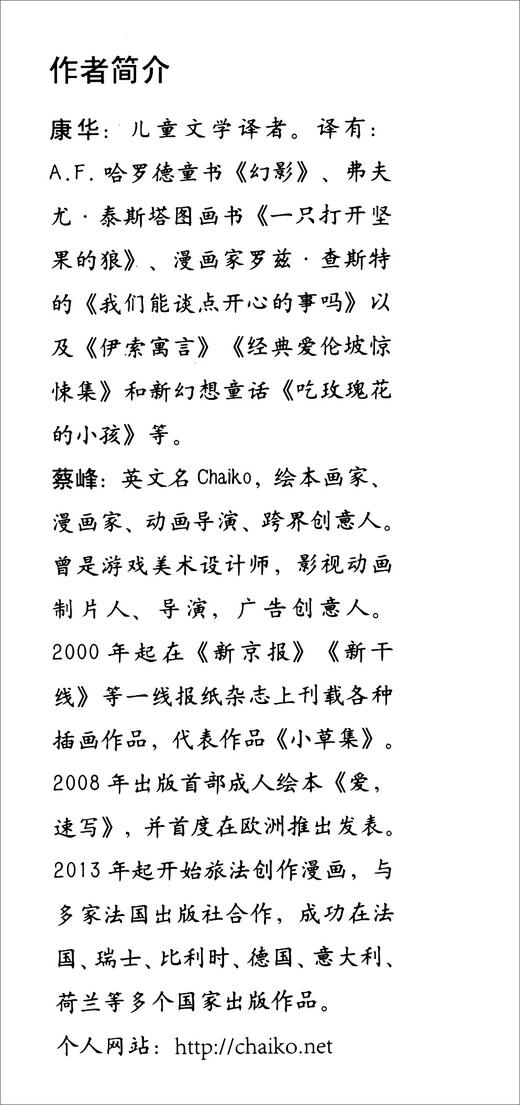 作者简介
康华：儿童文学译者。译有：
A.F.哈罗德童书《幻影》、弗夫
尤·泰斯塔图画书《一只打开坚
果的狼》、漫画家罗兹·查斯特
的《我们能谈点开心的事吗》以
及《伊索寓言》《经典爱伦坡惊
悚集》和新幻想童话《吃玫瑰花
的小孩》等。
蔡峰：英文名Chaiko，绘本画家、
漫画家、动画导演、跨界创意人。
曾是游戏美术设计师，影视动画
制片人、导演，广告创意人。
2000年起在《新京报》《新干
线》等一线报纸杂志上刊载各种
插画作品，代表作品《小草集》。
2008年出版首部成人绘本《爱，
速写》，并首度在欧洲推出发表。
2013年起开始旅法创作漫画，与
多家法国出版社合作，成功在法
国、瑞士、比利时、德国、意大利、
荷兰等多个国家出版作品。
个人网站：http://chaiko.net